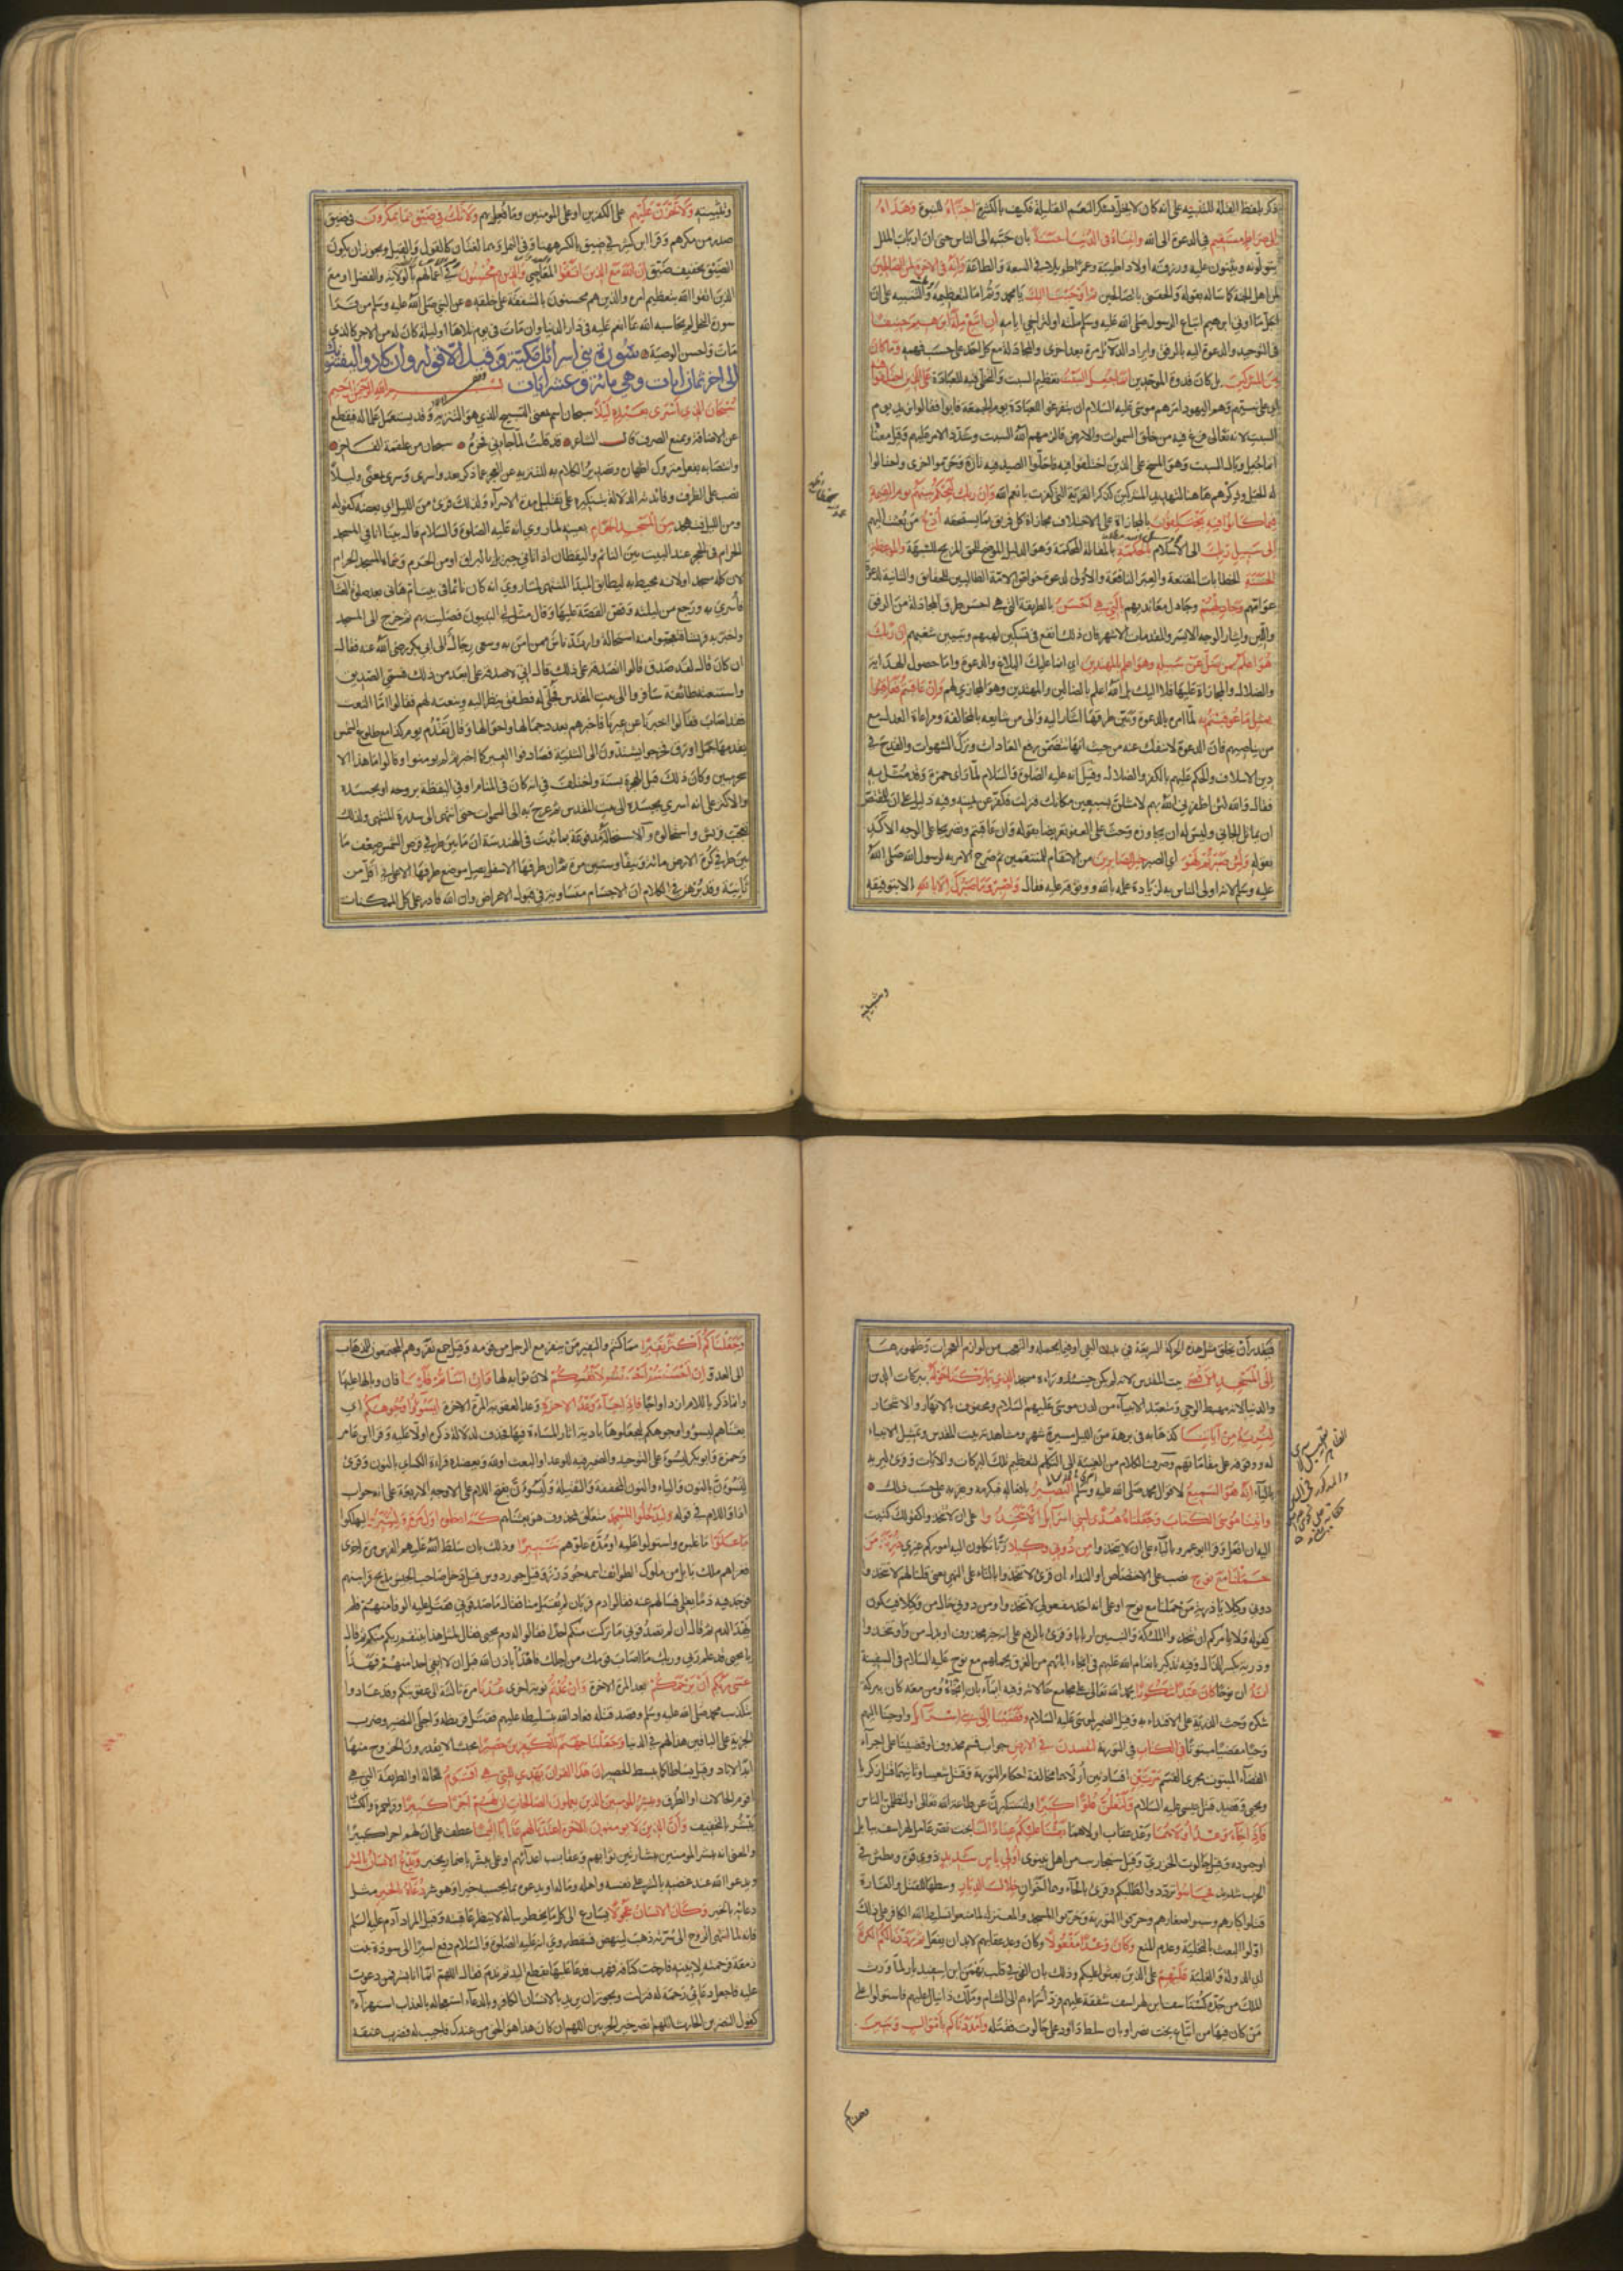 ذكر بلفظ القلة للتنبيه على انه كان لا يخل بشكر النعم القليلة فكيف بالكثيرة اجتباه للنبوة وهداه
الى صراط مستقيم في الدعوة الى الله واتيناه في الدنيا حسنة بان حببه الى الناس حتى ان ارباب الملل
يتولونه ويثنون عليه ورزقه اولادا طيبة وعمرا طويلا في السعة والطاعة وانه في الاخرة لمن الصالحين
لمن اهل الجنة كما ساله بقوله والحقني بالصالحين ثم اوحينا اليك يا محمد وثم اما لتعظيمه والتنبيه على ان
اجل ما اوتي ابرهيم اتباع الرسول صلى الله عليه وسلم ملته او لتراخي ايامه ان اتبع ملة ابرهيم حنيفا
في التوحيد والدعوة اليه بالرفق وايراد الدلائل مرة بعد اخرى والمجادلة مع كل احد على حسب فهمه وما كان
من المشركين بل كان قدوة الموحدين انما جعل السبت تعظيم السبت والتخلي فيه للعبادة على الذين اختلفوا فيه
اي على نبيهم وهم اليهود امرهم موسى عليه السلام ان يتفرغوا للعبادة يوم الجمعة فابوا وقالوا نريد يوم
السبت لانه تعالى فرغ فيه من خلق السموات والارض فالزمهم الله السبت وشدد الامر عليهم وقيل معناه
انما جعل وبال السبت وهو المسخ على الذين اختلفوا فيه فاحلوا الصيد فيه تارة وحرموا اخرى واحتالوا
له الحيل وذكرهم هاهنا لتهديد المشركين كذكر القرية التي كفرت بانعم الله وان ربك ليحكم بينهم يوم القيمة
فيما كانوا فيه يختلفون بالمجازاة على الاختلاف مجازاة كل فريق بما يستحقه ادع من بعثت اليهم
الى سبيل ربك الى الاسلام بالحكمة بالمقالة المحكمة وهو الدليل الموضح للحق المزيح للشبهة والموعظة
الحسنة الخطابات المقنعة والعبر النافعة والاولى لدعوة خواص الامة الطالبين للحقائق والثانية لدعوة
عوامهم وجادلهم وجادل معانديهم بالتي هي احسن بالطريقة التي هي احسن طرق المجادلة من الرفق
واللين وايثار الوجه الايسر والمقدمات الاشهر فان ذلك انفع في تسكين لهبهم وتبيين شغبهم ان ربك
هو اعلم بمن ضل عن سبيله وهو اعلم بالمهتدين اي انما عليك البلاغ والدعوة واما حصول الهداية
والضلال والمجازاة عليهما فلا اليك بل الله اعلم بالضالين والمهتدين وهو المجازي لهم وان عاقبتم فعاقبوا
بمثل ما عوقبتم به لما امره بالدعوة وبين طرقها اشار اليه والى من شايعه بالمخالفة ومراعاة العدل مع
من يناصبهم فان الدعوة لا تنفك عنه من حيث انها تتضمن رفع العادات وترك الشهوات والقدح في
دين الاسلاف والحكم عليهم بالكفر والضلال وقيل انه عليه الصلوة والسلام لما راى حمزة وقد مثل به
فقال والله لئن اظفرني الله بهم لامثلن بسبعين مكانك فنزلت فكفر عن يمينه وفيه دليل على ان للمقتص
ان يماثل الجاني وليس له ان يجاوزه وحث على العفو تعريضا بقوله وان عاقبتم وتصريحا على الوجه الاكد
بقوله ولئن صبرتم لهو اي الصبر خير للصابرين من الانتقام للمنتقمين ثم صرح الامر به لرسول الله صلى الله
عليه وسلم لانه اولى الناس به لزيادة علمه بالله ووثوقه عليه فقال واصبر وما صبرك الا بالله الا بتوفيقه
وتثبيته
وتثبيته ولا تحزن عليهم على الكفرين او على المومنين وما فعل بهم ولا تك في ضيق مما يمكرون في ضيق
صدر من مكرهم وقرا ابن كثير في ضيق بالكسر ههنا وفي النمل وهما لغتان كالقول والقيل ويجوز ان يكون
الضيق تخفيف ضيق ان الله مع الذين اتقوا المعاصي والذين هم محسنون في اعمالهم بالولاية والفضل او مع
الذين اتقوا الله بتعظيم امره والذين هم محسنون بالشفقة على خلقه عن النبي صلى الله عليه وسلم من قرا
سورة النحل لم يحاسبه الله بما انعم عليه في دار الدنيا وان مات في يوم تلاها او ليلة كان له من الاجر كالذي
مات واحسن الوصية سورة بني اسرائل مكية وقيل الا قوله وان كادوا ليفتنونك
الى اخر ثمان ايات وهي مائة وعشر ايات بسم الله الرحمن الرحيم
سبحان الذي اسرى بعبده ليلا سبحان اسم بمعنى التسبيح الذي هو التنزيه وقد يستعمل علما له فيقطع
عن الاضافة ويمنع الصرف قال الشاعر قد قلت لما جاءني فخره سبحان من علقمة الفاخر
وانتصابه بفعل متروك اظهاره وتصدير الكلام به للتنزيه عن العجز عما ذكر بعد واسرى وسرى بمعنى وليلا
نصب على الظرف وفائدته الدلالة بتنكيره على تقليل مدة الاسراء ولذلك قرئ من الليل اي بعضه كقوله
ومن الليل فتهجد من المسجد الحرام بعينه لما روي انه عليه الصلوة والسلام قال بينا انا في المسجد
الحرام في الحجر عند البيت بين النائم واليقظان اذ اتاني جبريل بالبراق او من الحرم وسماه المسجد الحرام
لان كله مسجد او لانه محيط به ليطابق المبدا المنتهى لما روي انه كان نائما في بيت ام هانئ بعد صلوة العشا
فاسري به ورجع من ليلته وقص القصة عليها وقال مثل لي النبيون فصليت بهم ثم خرج الى المسجد
واخبر به قريشا فتعجبوا منه استحالة وارتد ناس ممن امن به وسعى رجال الى ابي بكر رضي الله عنه فقال
ان كان قال لقد صدق قالوا اتصدقه على ذلك قال اني لاصدقه على ابعد من ذلك فسمي الصديق
واستنعته طائفة سافروا الى بيت المقدس فجلى له فطفق ينظر اليه وينعته لهم فقالوا اما النعت
فقد اصاب فقالوا اخبرنا عن عيرنا فاخبرهم بعدد جمالها واحوالها وقال تقدم يوم كذا مع طلوع الشمس
يقدمها جمل اورق فخرجوا يشتدون الى الثنية فصادفوا العير كما اخبر ثم لم يومنوا وقالوا ما هذا الا
سحر مبين وكان ذلك قبل الهجرة بسنة واختلف في انه كان في المنام او في اليقظة بروحه او بجسده
والاكثر على انه اسري بجسده الى بيت المقدس ثم عرج به الى السموات حتى انتهى الى سدرة المنتهى ولذلك
تعجب قريش واستحالوه والاستحالة مدفوعة بما ثبت في الهندسة ان ما بين طرفي قرص الشمس ضعف ما
بين طرفي كرة الارض مائة ونيفا وستين مرة ثم ان طرفها الاسفل يصل موضع طرفها الاعلى في اقل من
ثانية وقد برهن في الكلام ان الاجسام متساوية في قبول الاعراض وان الله قادر على كل الممكنات
فيقدر ان يخلق مثل هذه الحركة السريعة في بدن النبي او فيما يحمله والتعجب من لوازم المعجزات
الى المسجد الاقصى بيت المقدس لانه لم يكن حينئذ وراءه مسجد الذي باركنا حوله ببركات الدين
والدنيا لانه مهبط الوحي ومتعبد الانبياء من لدن موسى عليهم السلام ومحفوف بالانهار والاشجار
لنريه من اياتنا كذهابه في برهة من الليل مسيرة شهر ومشاهدته بيت المقدس وتمثيل الانبياء
له ووقوفه على مقاماتهم وصرف الكلام من الغيبة الى التكلم لتعظيم تلك البركات والايات وقرئ ليريه
بالياء انه هو السميع لاقوال محمد صلى الله عليه وسلم البصير بافعاله فيكرمه ويقربه على حسب ذلك
واتينا موسى الكتاب وجعلناه هدى لبني اسرائل الا تتخذوا على ان لا تتخذوا كقولك كتبت
اليه ان افعل وقرا ابو عمرو بالياء على ان لا يتخذوا من دوني وكيلا ربا تكلون اليه اموركم غيري ذرية من
حملنا مع نوح نصب على الاختصاص او النداء ان قرئ لا تتخذوا بالتاء على النهي يعني قلنا لهم لا تتخذوا
دوني وكيلا يا ذرية من حملنا مع نوح او على انه احد مفعولي لا تتخذوا ومن دوني حال من وكيلا فيكون
كقوله ولا يامركم ان تتخذوا الملئكة والنبيين اربابا وقرئ بالرفع على انه خبر محذوف او بدل من واو تتخذوا
وذرية بكسر الذال وفيه تذكير بانعام الله عليهم في انجاء ابائهم من الغرق بحملهم مع نوح عليه السلام في السفينة
انه ان نوحا كان عبدا شكورا يحمد الله تعالى على مجامع حالاته وفيه ايماء بان انجاءه ومن معه كان ببركة
شكره وحث للذرية على الاقتداء به وقيل الضمير لموسى عليه السلام وقضينا الى بني اسرائل واوحينا اليهم
وحيا مقضيا مبتوتا في الكتاب في التورية لتفسدن في الارض جواب قسم محذوف او قضينا على اجراء
القضاء المبتوت مجرى القسم مرتين افسادتين اولاهما مخالفة احكام التورية وقتل شعيا وثانيهما قتل زكريا
ويحيى وقصد قتل عيسى عليه السلام ولتعلن علوا كبيرا ولتستكبرن عن طاعة الله تعالى او لتظلمن الناس
فاذا جاء وعد اولاهما وعد عقاب اولاهما بعثنا عليكم عبادا لنا بخت نصر عامل لهراسف على بابل
وجنوده وقيل جالوت الخزري وقيل سنحاريب من اهل نينوى اولي باس شديد ذوي قوة وبطش في
الحرب شديد فجاسوا ترددوا لطلبكم وقرئ بالحاء وهما اخوان خلال الديار وسطها للقتل والغارة
فقتلوا كبارهم وسبوا صغارهم وحرقوا التورية وخربوا المسجد والمعتزلة لما منعوا تسليط الله الكافر على ذلك
اولوا البعث بالتخلية وعدم المنع وكان وعدا مفعولا وكان وعد عقابهم لا بد ان يفعل ثم رددنا لكم الكرة
اي الدولة والغلبة عليهم على الذين بعثوا عليكم وذلك بان القى في قلب بهمن بن اسفنديار لما ورث
الملك من جده كشتاسف بن لهراسف شفقة عليهم فرد اسراءهم الى الشام وملك دانيال عليهم فاستولوا على
من كان فيها من اتباع بخت نصر او بان سلط داود على جالوت فقتله وامددناكم باموال وبنين
وجعلناكم
وجعلناكم اكثر نفيرا مما كنتم والنفير من ينفر مع الرجل من قومه وقيل جمع نفر وهم المجتمعون للذهاب
الى العدو ان احسنتم احسنتم لانفسكم لان ثوابه لها وان اساتم فلها فان وبالها عليها
وانما ذكر باللام ازدواجا فاذا جاء وعد الاخرة وعد العقوبة المرة الاخرة ليسوؤا وجوهكم اي
بعثناهم ليسوؤا وجوهكم ليجعلوها بادية اثار المساءة فيها فحذف لدلالة ذكره اولا عليه وقرا ابن عامر
وحمزة وابو بكر ليسوء على التوحيد والضمير فيه للوعد او للبعث او لله ويعضده قراءة الكسائي بالنون وقرئ
لنسوءن بالنون والياء والنون المخففة والثقيلة ولنسوءن بفتح اللام على الاوجه الاربعة على انه جواب
اذا واللام في قوله وليدخلوا المسجد متعلق بمحذوف هو بعثناهم كما دخلوه اول مرة وليتبروا ليهلكوا
ما علوا ما غلبوه واستولوا عليه او مدة علوهم تتبيرا وذلك بان سلط الله عليهم الفرس مرة اخرى
فغزاهم ملك بابل من ملوك الطوائف اسمه جودرز وقيل جردوس قيل دخل صاحب الجيش مذبح قرابينهم
فوجد فيه دما يغلي فسالهم عنه فقالوا دم قربان لم يقبل منا فقال ما صدقوني فقتل عليه الوفا منهم فلم
يهدا الدم ثم قال ان لم تصدقوني ما تركت منكم احدا فقالوا انه دم يحيى فقال لمثل هذا ينتقم ربكم منكم ثم قال
يا يحيى قد علم ربي وربك ما اصاب قومك من اجلك فاهدا باذن الله قبل ان لا ابقي احدا منهم فهدا
عسى ربكم ان يرحمكم بعد المرة الاخرة وان عدتم نوبة اخرى عدنا مرة ثالثة الى عقوبتكم وقد عادوا
بتكذيب محمد صلى الله عليه وسلم وقصد قتله فعاد الله بتسليطه عليهم فقتل قريظة واجلى النضير وضرب
الجزية على الباقين هذا لهم في الدنيا وجعلنا جهنم للكفرين حصيرا محبسا لا يقدرون الخروج منها
ابد الاباد وقيل بساطا كما يبسط الحصير ان هذا القران يهدي للتي هي اقوم للحالة او الطريقة التي هي
اقوم الحالات او الطرق ويبشر المومنين الذين يعملون الصالحات ان لهم اجرا كبيرا وقرا حمزة والكسائي
يبشر بالتخفيف وان الذين لا يومنون بالاخرة اعتدنا لهم عذابا اليما عطف على ان لهم اجرا كبيرا
والمعنى انه يبشر المومنين ببشارتين ثوابهم وعقاب اعدائهم او على يبشر باضمار يخبر ويدع الانسان بالشر
ويدعو الله عند غضبه بالشر على نفسه واهله وماله او يدعوه بما يحسبه خيرا وهو شر دعاءه بالخير مثل
دعائه بالخير وكان الانسان عجولا يسارع الى كل ما يخطر بباله لا ينظر عاقبته وقيل المراد آدم عليه السلم
فانه لما انتهى الروح الى سرته ذهب لينهض فسقط روي انه عليه الصلوة والسلام دفع اسيرا الى سودة بنت
زمعة فرحمته لانينه فارخت كتافه فهرب فدعا عليها بقطع اليد ثم ندم فقال اللهم انما انا بشر فمن دعوت
عليه فاجعل دعائي رحمة له فنزلت ويجوز ان يريد بالانسان الكافر وبالدعاء استعجاله بالعذاب استهزاء
كقول النضر بن الحارث اللهم انصر خير الحزبين اللهم ان كان هذا هو الحق من عندك فاجيب له فضرب عنقه